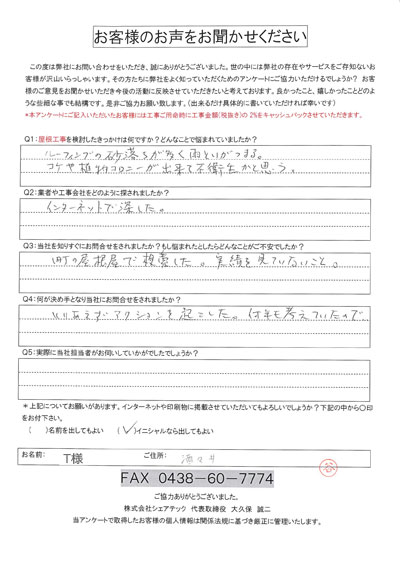 お客様のお声をお聞かせください
この度は弊社にお問い合わせをいただき、誠にありがとうございました。世の中には弊社の存在やサービスをご存知ないお
客様が沢山いらっしゃいます。その方たちに弊社をよく知っていただくためのアンケートにご協力いただけるでしょうか？ お客
様のご意見をお聞かせいただき今後の活動に反映させていただきたいと考えております。良かったこと、嬉しかったことどのよ
うな些細な事でも結構です。是非ご協力お願い致します。（出来るだけ具体的に書いていただければ幸いです）
*本アンケートにご記入いただいたお客様には工事ご用命時に工事金額(税抜き)の 2%をキャッシュバックさせていただきます。
Q1：屋根工事を検討したきっかけは何ですか？どんなことで悩まれていましたか？
ルーフィングの砂落ちが多く雨といがつまる。
コケや植物コロニーが出来て不衛生かと思う。
Q2：業者や工事会社をどのように探されましたか？
インターネットで探した。
Q3：当社を知りすぐにお問合せをされましたか？もし悩まれたとしたらどんなことがご不安でしたか？
町の屋根屋で検索した。実績を見ていないこと。
Q4：何が決め手となり当社にお問合せをされましたか？
とりあえずアクションを起こした。何年も考えていたので
Q5：実際に当社担当者がお伺いしていかがでしたでしょうか？
＊上記についてお願いがあります。インターネットや印刷物に掲載させていただいてもよろしいでしょうか？下記の中から〇印
をお付下さい。
（ ）名前を出してもよい （✓）イニシャルなら出してもよい
お名前： T様 ご住所：
FAX 0438-60-7774
ご協力ありがとうございました。
株式会社シェアテック 代表取締役 大久保 誠二
当アンケートで取得したお客様の個人情報は関係法規に基づき厳正に管理いたします。